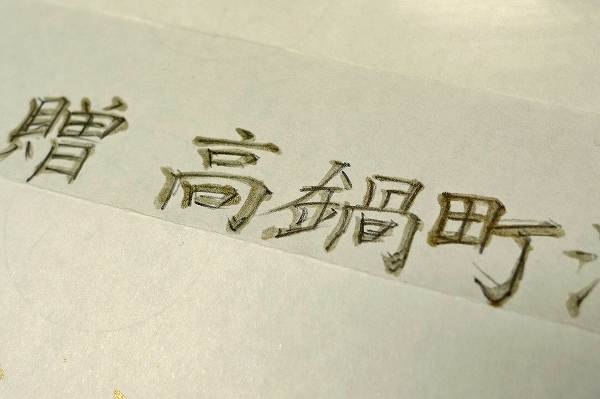 贈 高鍋町